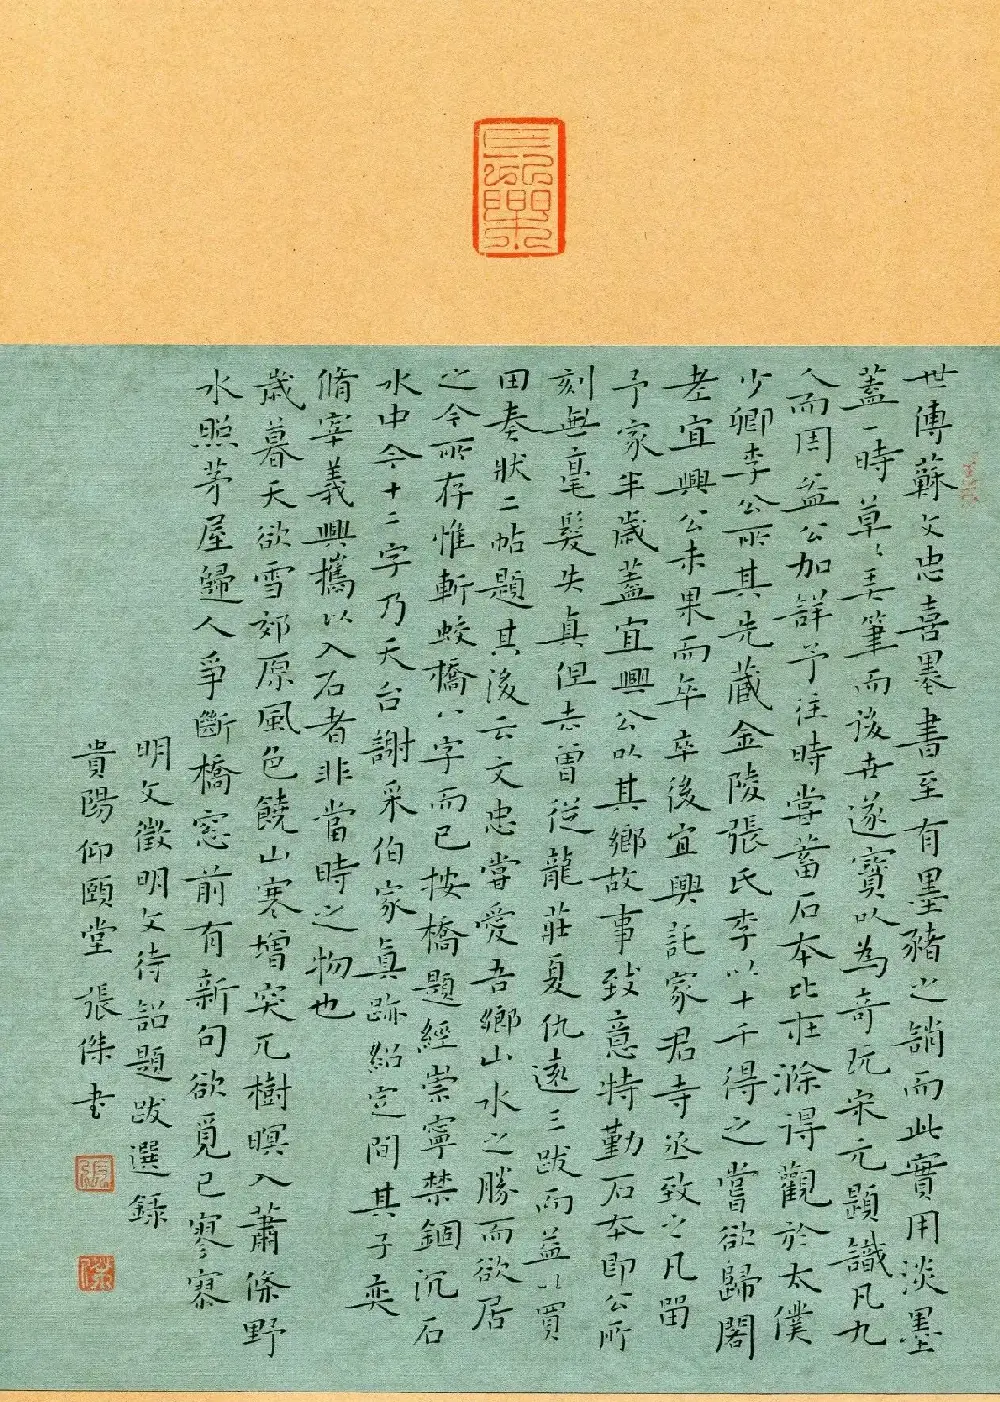 長樂
世傳蘇文忠喜墨書至有墨豬之誚而此實用淡墨
蓋一時草々弄筆而後世遂寶以為奇玩宋元題識凡九
人而周益公加詳予往時嘗蓄石本比在滁得觀於太僕
少卿李公所其先藏金陵張氏李以十千得之嘗欲歸閣
老宜興公未果而卒卒後宜興託家君寺丞致之凡留
予家半歲蓋宜興公以其鄉故事致意特勤石本即公所
刻無毫髮失真但去曾從龍莊夏仇遠三跋而益以買
田奏狀二帖題其後云文忠嘗愛吾鄉山水之勝而欲居
之今所存惟斬蛟橋八字而已按橋題經崇寧禁錮沉石
水中今十二字乃天台謝采伯家真跡紹定間其子奕
脩宰義興攜以入石者非當時之物也
歲暮天欲雪郊原風色饒山寒增突兀樹暝入蕭條野
水照茅屋歸人爭斷橋窓前有新句欲覓已寥寥
明文徵明文待詔題跋選錄
貴陽仰頤堂張傑书
張
傑